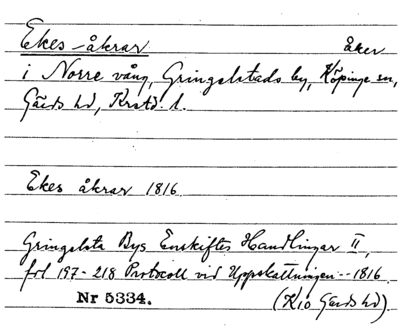 Ekes-åkrar åker
i Norre vång, Gringelstads by, Köpinge sn,
Gärds hd, Krstd. l.
Ekes åkrar 1816
Gringelsta Bys Enskiftes Handlingar II,
fol 197-218 Protocoll vid Uppskattningen -- 1816
Nr 5334. (K10 Gärds hd).